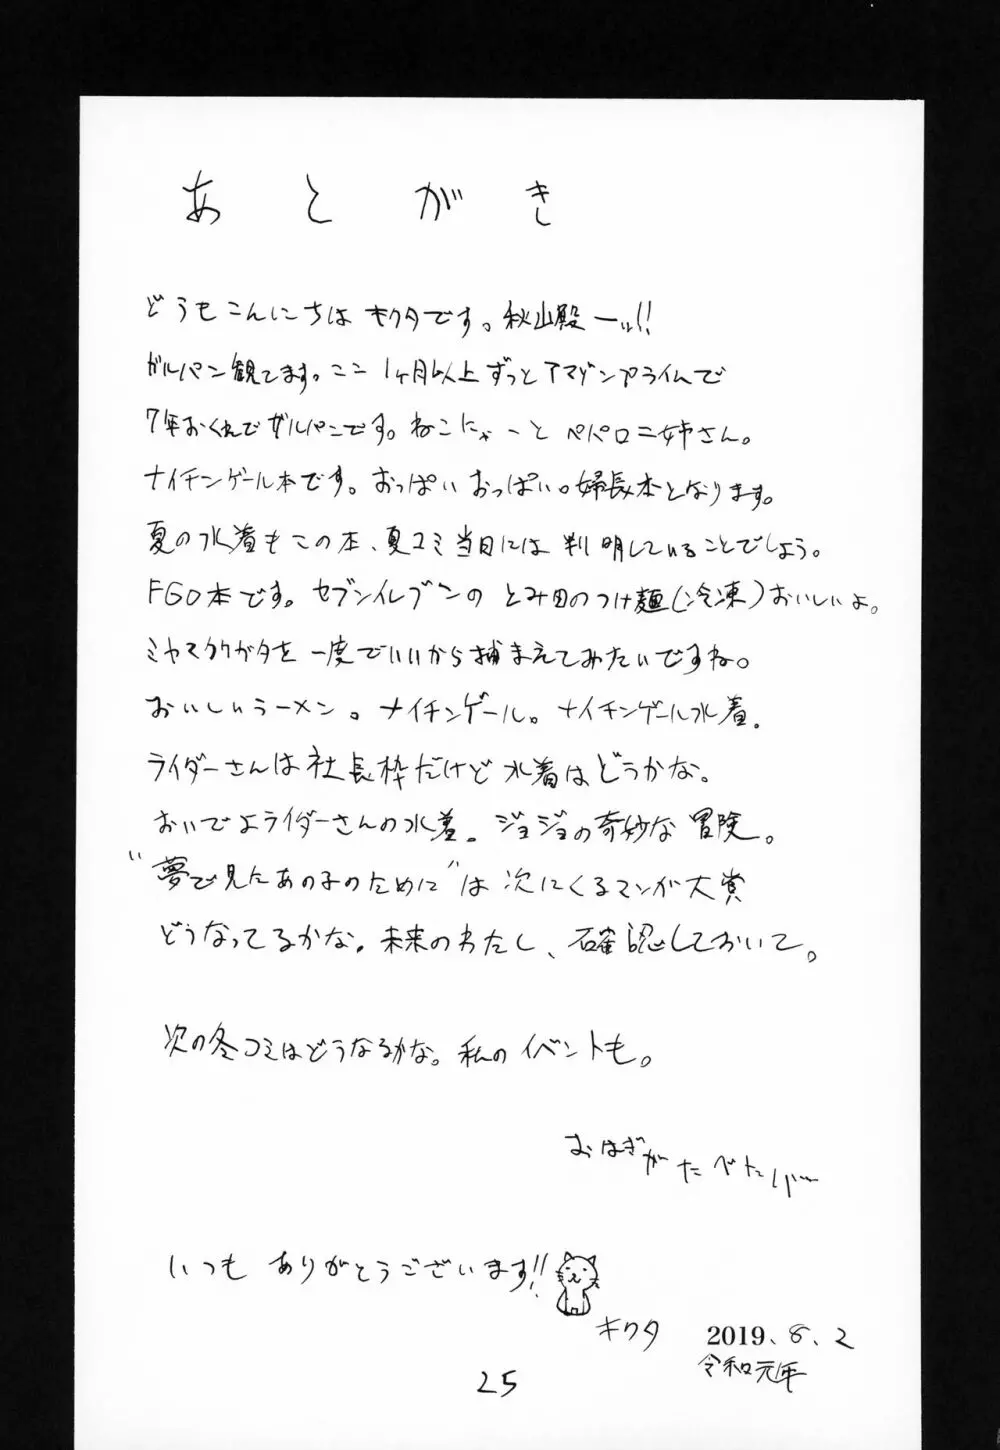 あとがき
どうもこんにちはキクタです。秋山殿ーッ!!
ガルパン観てます。ここ1ヶ月以上ずっとアマゾンプライムで
7年おくれでガルパンです。ねこにゃーとペパロニ姉さん。
ナイチンゲール本です。おっぱいおっぱい。婦長本となります。
夏の水着もこの本、夏コミ当日には判明していることでしょう。
FGO本です。セブンイレブンのとみ田のつけ麺(冷凍)おいしいよ。
ミヤマクワガタを一度でいいから捕まえてみたいですね。
おいしいラーメン。ナイチンゲール。ナイチンゲール水着。
ライダーさんは社長枠だけど水着はどうかな。
おいでよライダーさんの水着。ジョジョの奇妙な冒険。
"夢で見たあの子のために"は次にくるマンガ大賞
どうなってるかな。未来のわたし、確認しておいて。
次の冬コミはどうなるかな。私のイベントも。
おはぎがたべたい…
いつもありがとうございます!!
キクタ 2019、8、2
令和元年
25